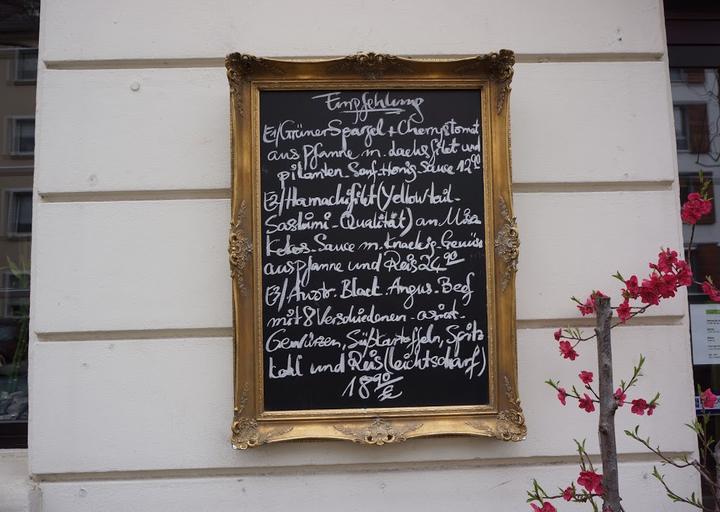 Empfehlung
E1/Grüner Spargel + Cherrytomat
aus Pfanne m. Lachsfilet und
pikanten Senf-Honig Sauce 12 90
E2/Hamachifilet (Yellowtail-
Sashimi-Qualität) an Miso
Kokos-Sauce m. Knackig-Gemüse
aus Pfanne und Reis 24 90
E3/Austr. Black-Angus-Beef
mit 8 Verschiedenen-asiat-
Gewürzen, Süßkartoffeln, Spitz
kohl und Reis (leicht scharf)
18 90 €